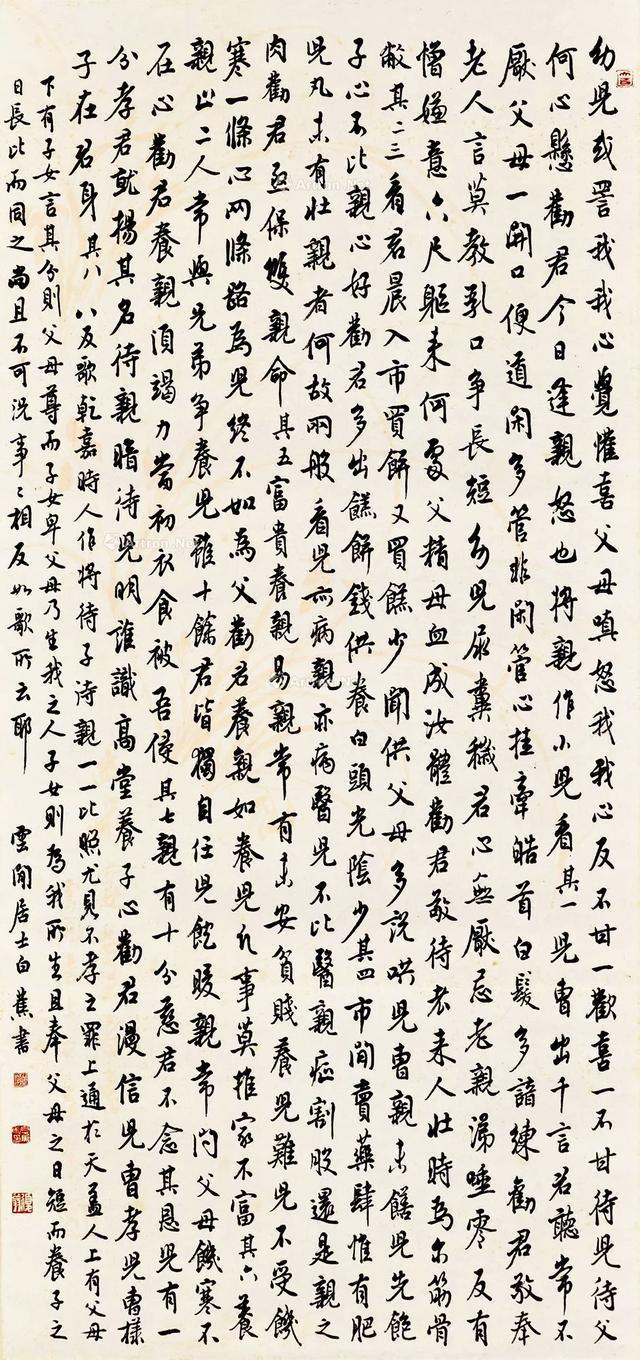 幼兒或詈我我心覺懽喜父母嗔怒我我心反不甘一歡喜一不甘待兒待父
何心懸勸君今日逢親怒也將親作小兒看其一兒曹出千言君聽常不
厭父母一開口便道閑多管非閑管心挂牽皓首白髮多諳練勸君敬奉
老人言莫教乳口爭長短幼兒尿糞穢君心無厭忌老親涕唾零反有
憎嫌意六尺軀來何處父精母血成汝體勸君敬待老來人壯時為爾筋骨
敝其二三看君晨入市買餅又買餻少聞供父母多說哄兒曹親未饍兒先飽
子心不比親心好勸君多出餻餅錢供養白頭光陰少其四市間賣藥肆惟有肥
兒丸未有壯親者何故兩般看兒亦病親亦病醫兒不比醫親症割股還是親之
肉勸君亟保雙親命其五富貴養親易親常有未安貧賤養兒難兒不受饑
寒一條心兩條路為兒終不如為父勸君養親如養兒凡事莫推家不富其六養
親止二人常與兄弟爭養兒雖十餘君皆獨自任兒飽暖親常問父母饑寒不
在心勸君養親須竭力當初衣食被吾侵其七親有十分慈君不念其恩兒有一
分孝君就揚其名待親暗待兒明誰識高堂養子心勸君漫信兒曹孝兒曹樣
子在君身其八八反歌乾嘉時人作將待子待親一一比照尤見不孝之罪上通於天蓋人上有父母
下有子女言其分則父母尊而子女卑父母乃生我之人子女則為我所生且奉父母之日短而養子之
日長比而同之尚且不可況事々相反如歌所云耶 雲間居士白蕉書
Artron.Net